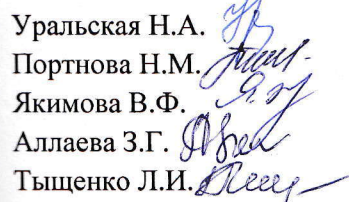 Уральская Н.А.
Портнова Н.М.
Якимова В.Ф.
Аллаева З.Г.
Тыщенко Л.И.